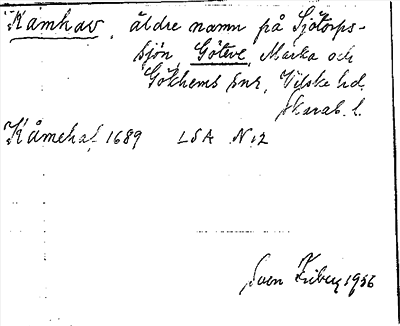 Kamhav, äldre namn på Sjötorps-
sjön, Göteve, Marka och
Gökhems snr, Vilske hd,
Skarab. l.
Kåmehaf 1689 LSA N:2
Sven Friberg 1956